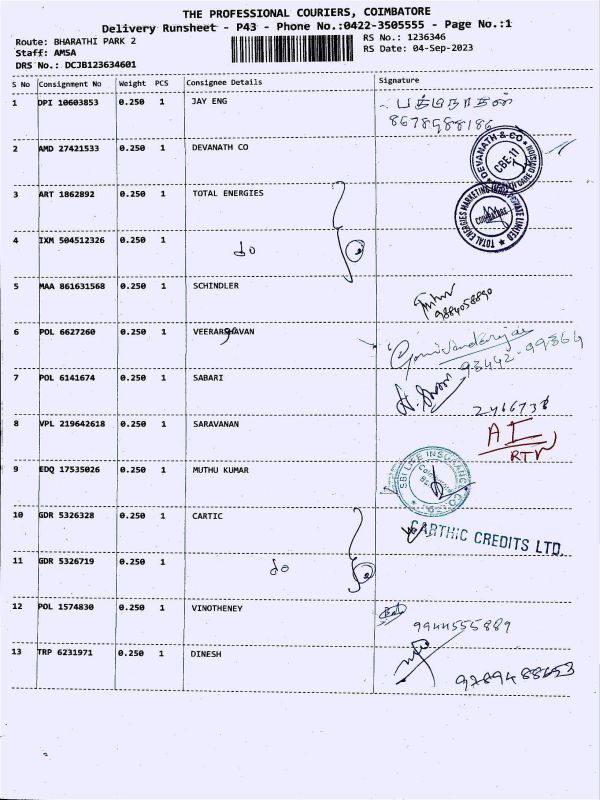 THE PROFESSIONAL COURIERS, COIMBATORE
Delivery Runsheet - P43 - Phone No.:0422-3505555 - Page No.:1
Route: BHARATHI PARK 2
Staff: AMSA
DRS No.: DCJB123634601
RS No.: 1236346
RS Date: 04-Sep-2023
S No Consignment No Weight PCS Consignee Details Signature
1 DPI 10603853 0.250 1 JAY ENG பத்மநாதன்
8678588186
2 AMD 27421533 0.250 1 DEVANATH CO DEVANATH & CO CBE-11
3 ART 1862892 0.250 1 TOTAL ENERGIES TOTAL ENERGIES MARKETING PRIVATE LIMITED COIMBATORE
4 IXM 504512326 0.250 1 do
5 MAA 861631568 0.250 1 SCHINDLER
9884058890
6 POL 6627260 0.250 1 VEERARAGAVAN
93442-99364
7 POL 6141674 0.250 1 SABARI
2466738
8 VPL 219642618 0.250 1 SARAVANAN
RTN
9 EDQ 17535026 0.250 1 MUTHU KUMAR SBI LIFE INSURANCE CO
10 GDR 5326328 0.250 1 CARTIC CARTHIC CREDITS LTD.
11 GDR 5326719 0.250 1 do
12 POL 1574830 0.250 1 VINOTHENEY
9944555889
13 TRP 6231971 0.250 1 DINESH
9789488653